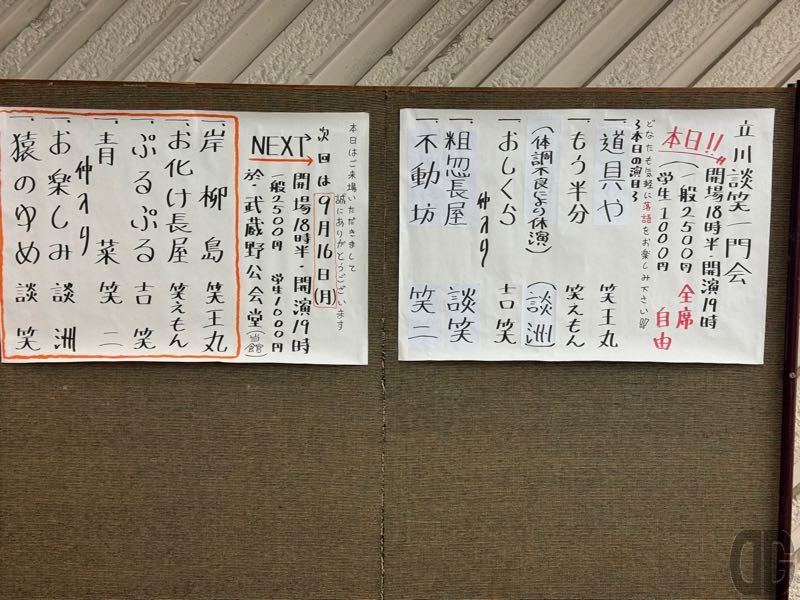 立川談笑一門会
本日!!
開場18時半・開演19時
(一般2500円
学生1000円
全席
自由
どなたも気軽に落語をお楽しみ下さい
本日の演目
一、道具や 笑王丸
一、もう半分 笑えもん
(体調不良により休演) (談洲)
一、おしくら 吉笑
仲入り
一、粗忽長屋 談笑
一、不動坊 笑二
本日はご来場いただきまして
誠にありがとうございます
次回は9月16日(月)
NEXT
開場18時半・開演19時
一般2500円 学生1000円
於・武蔵野公会堂(当館)
一、岸柳島 笑王丸
一、お化け長屋 笑えもん
一、ぷるぷる 吉笑
一、青菜 笑二
仲入り
一、お楽しみ 談洲
一、猿のゆめ 談笑
DG